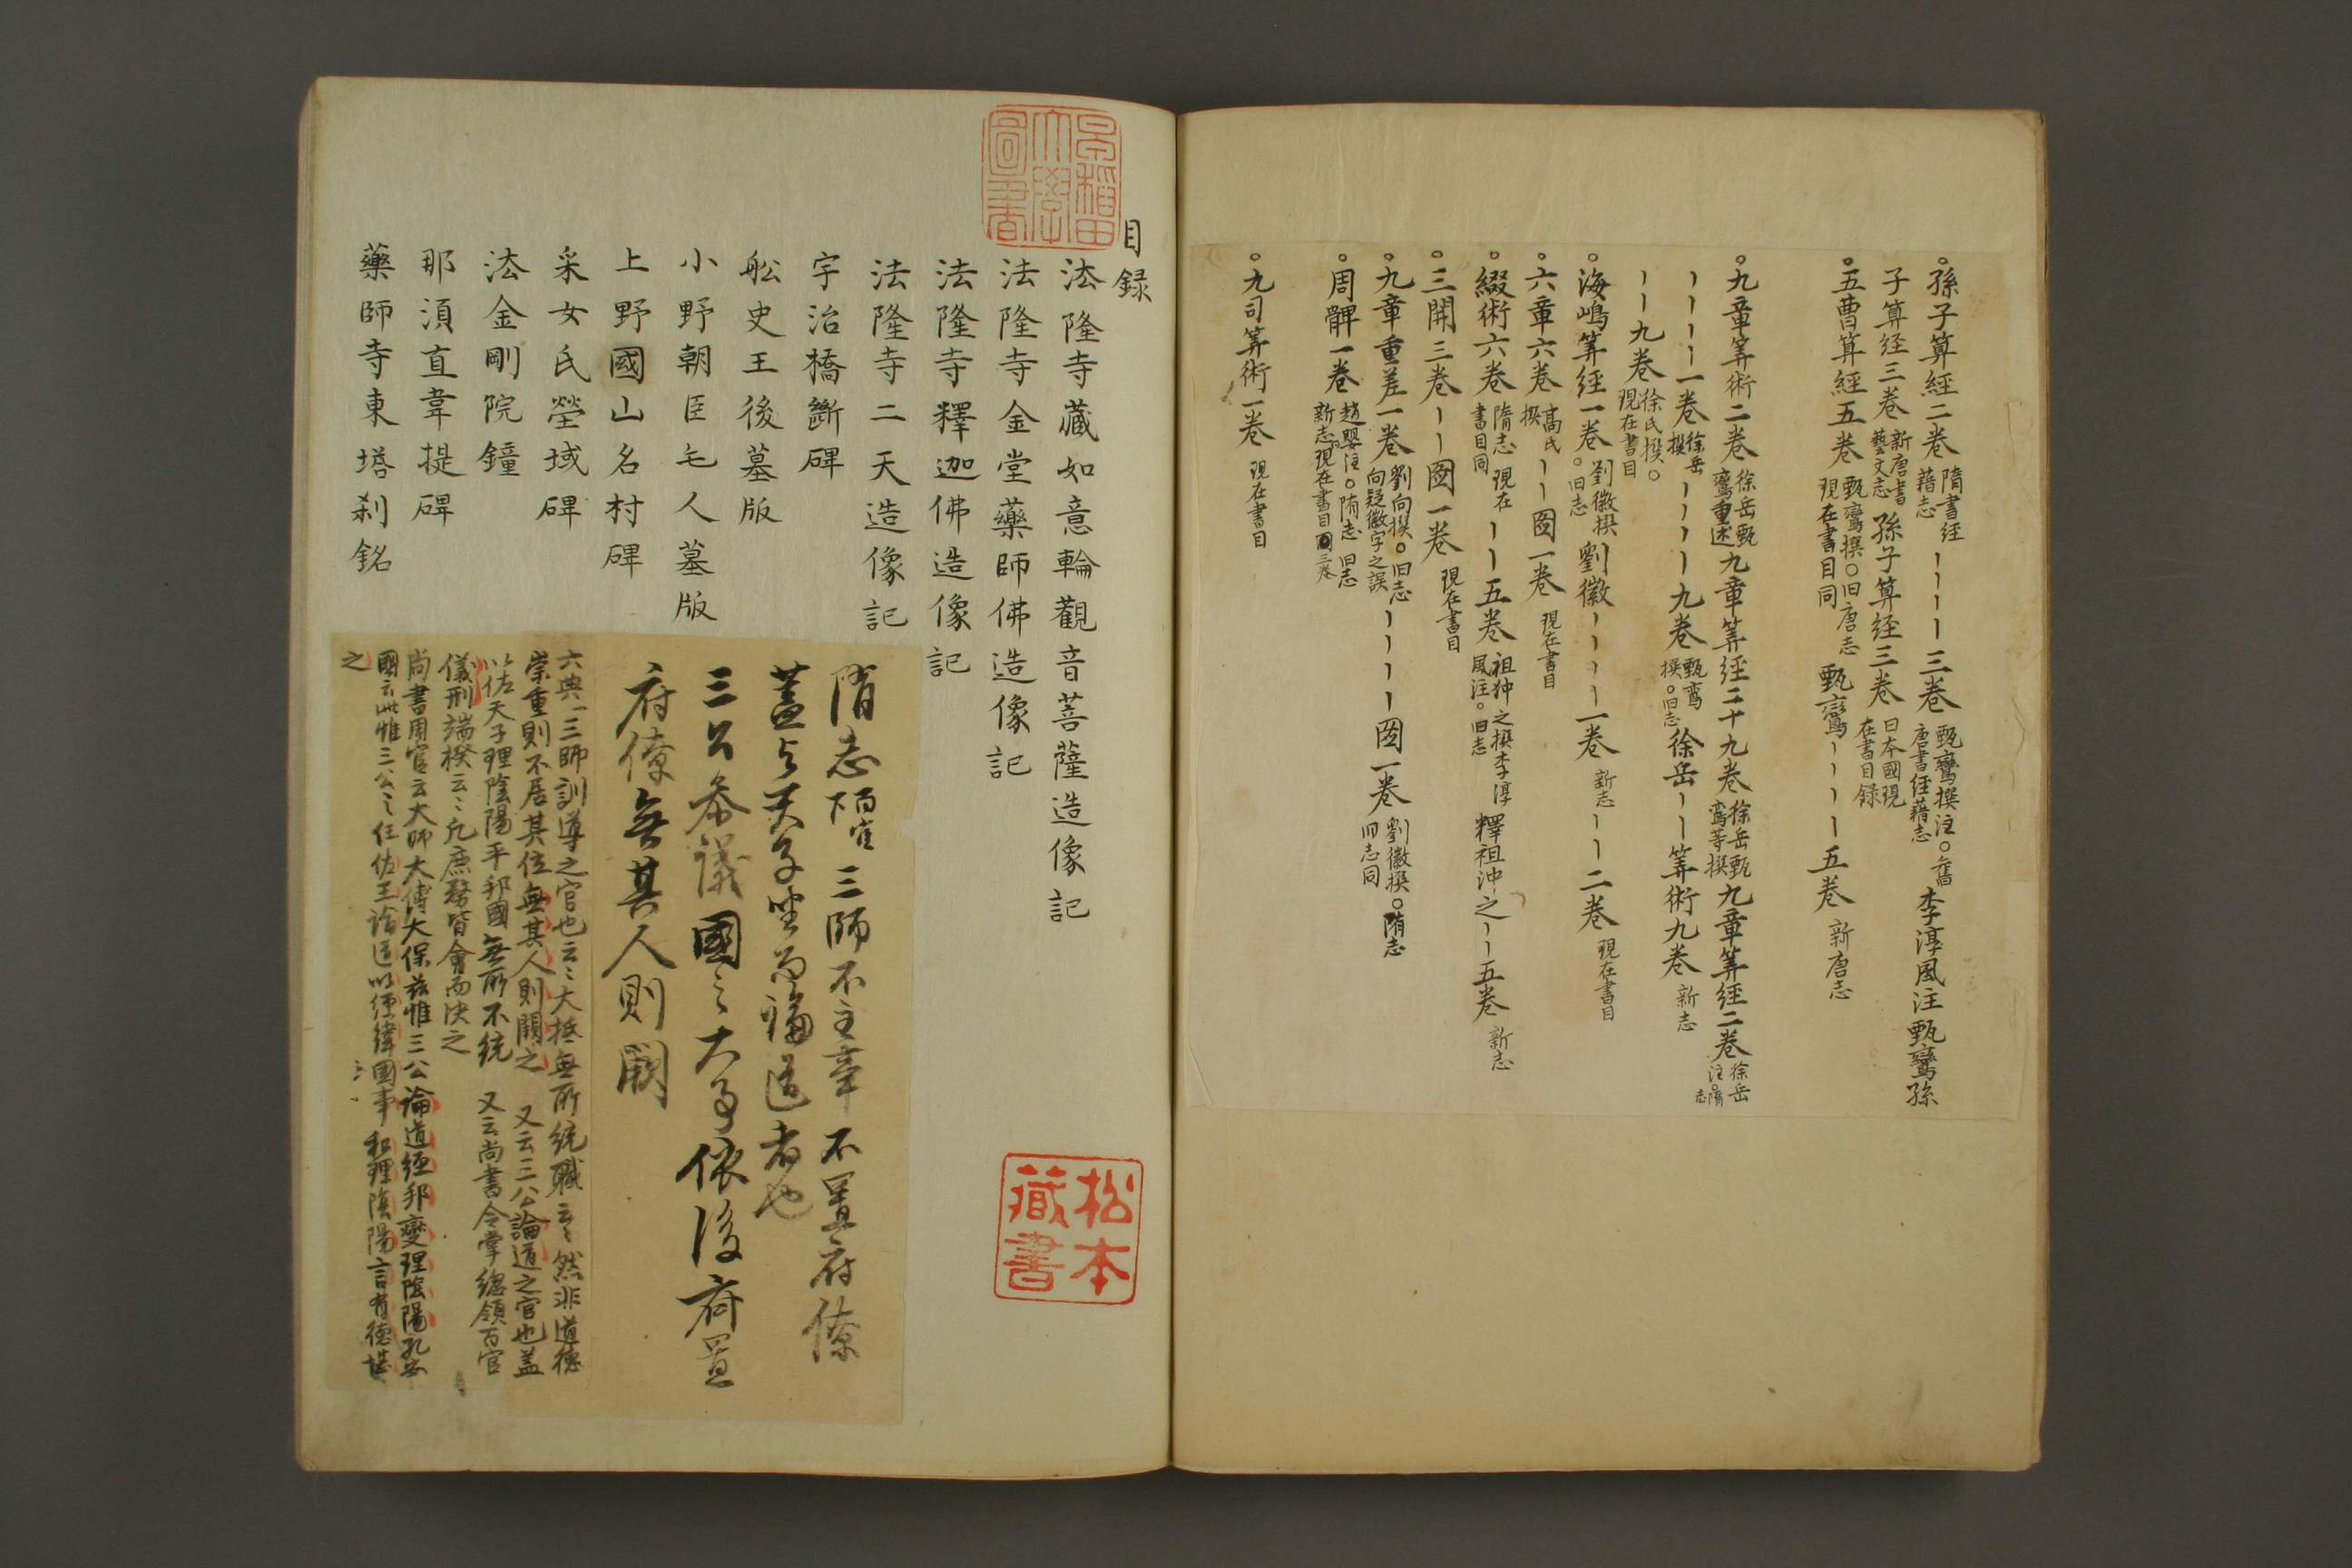 孫子算經二巻 隋書経藉志 〡〡〡〡三巻 甄鸞撰注。舊唐書経藉志 李淳風注甄鸞孫
子算経三巻 新唐書藝文志 孫子算経三巻 日本國現在書目録
五曹算經五巻 甄鸞撰〇旧唐志現在書目同 甄鸞〡〡〡〡五巻 新唐志
九章筭術二巻 徐岳甄鸞重述 九章筭経二十九巻 徐岳甄鸞等撰 九章筭経二巻 徐岳注。隋志
〡〡〡〡一巻 徐岳撰 〡〡〡〡九巻 甄鸞撰。旧志 徐岳〡〡筭術九巻 新志
〡〡九巻 徐氏撰。現在書目
海嶋筭経一巻 劉徽撰。旧志 劉徽〡〡〡〡一巻 新志 〡〡二巻 現在書目
六章六巻 髙氏撰 〡〡図一巻 現在書目
綴術六巻 隋志現在書目同 〡〡五巻 祖狆之撰李淳風注。旧志 釋祖沖之〡〡五巻 新志
三開三巻 〡〡図一巻 現在書目
九章重差一巻 劉向撰。旧志向疑徽字之誤 〡〡〡〡図一巻 劉徽撰。隋志旧志同
周髀一巻 趙嬰注。隋志旧志新志現在書目 図三巻
九司筭術一巻 現在書目
早稲田大學圖書
目録
法隆寺藏如意輪觀音菩薩造像記
法隆寺金堂藥師佛造像記
法隆寺釋迦佛造像記
法隆寺二天造像記
宇治橋斷碑
舩史王後墓版
小野朝臣毛人墓版
上野國山名村碑
采女氏塋域碑
法金剛院鐘
那須直韋提碑
藥師寺東塔刹銘
松本藏書
隋志 三師不主事不置府僚
蓋与天子坐而論道者也
三公参議國之大事依後斉置
府僚無其人則闕
六典一三師訓導之官也云々大抵無所統職云々然非道德
崇重則不居其位無其人則闕之 又云三公論道之官也盖
以佐天子理陰陽平邦國無所不統 又云尚書令掌總領百官
儀刑端揆云々凡庶務皆會而決之
尚書周官云大師大傅大保茲惟三公論道経邦燮理陰陽孔安
國云此惟三公之任佐王論道以経緯國事和理陰陽言有德堪
之